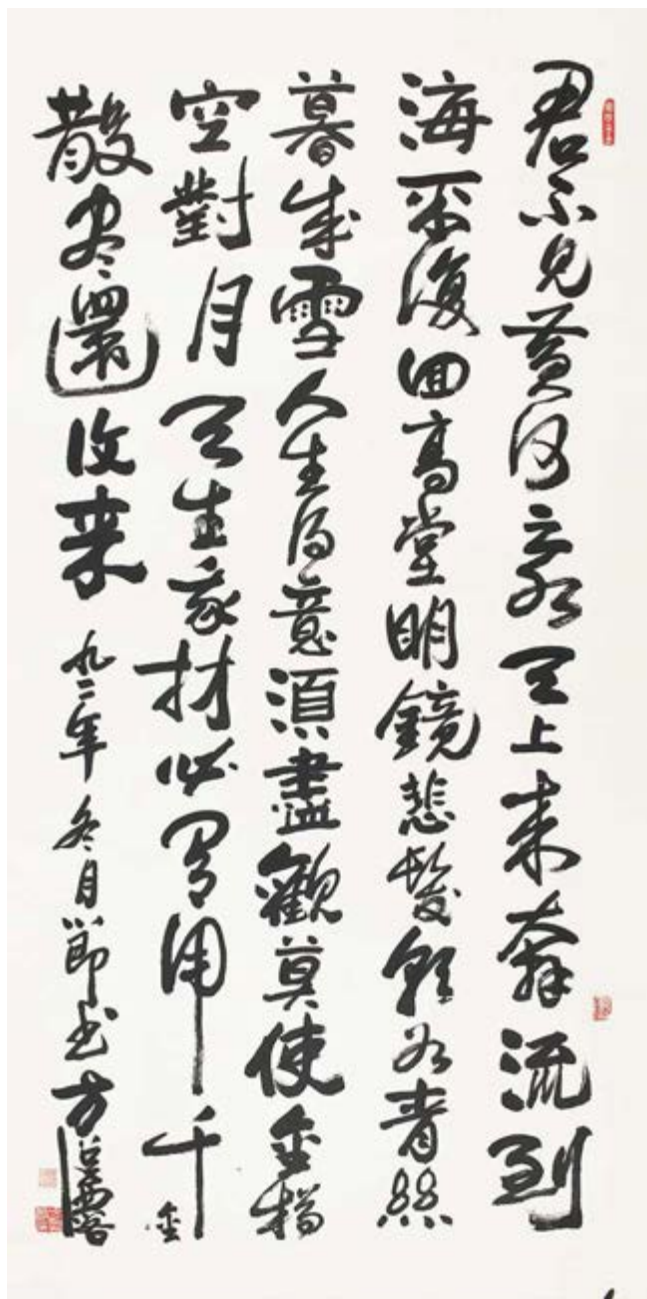 君不見黃河之水天上来奔流到
海不復回高堂明鏡悲髮朝如青絲
暮成雪人生得意須盡歡莫使金樽
空對月天生我材必有用千金
散尽還收来 九二年冬月節书方